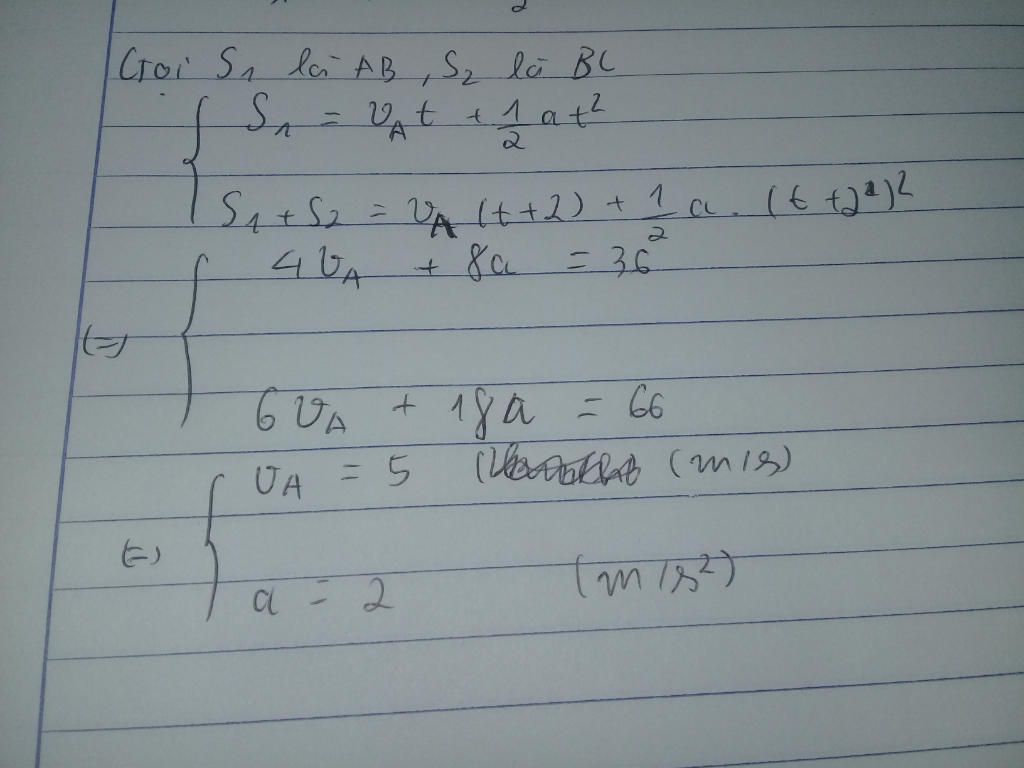 Gọi S₁ là AB, S₂ là BC
S₁ = v_A t + 1/2 at²
S₁ + S₂ = v_A (t+2) + 1/2 a. (t+2)²
4v_A + 8a = 36
(=)
6v_A + 18a = 66
v_A = 5 (m/s)
(=)
a = 2 (m/s²)